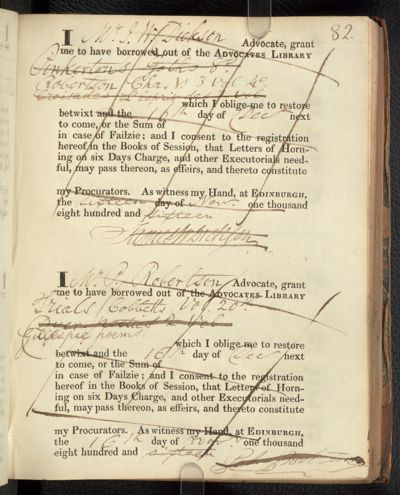 82.
I Mr J. W. Dickson Advocate, grant
me to have borrowed out of the ADVOCATES LIBRARY
Pinkerton's Goths 8º
Robertson Cha. V 3 vol 4º
which I oblige me to restore
betwixt and the 16th day of Dec next
to come, or the Sum of
in case of Failzie; and I consent to the registration
hereof in the Books of Session, that Letters of Horn-
ing on six Days Charge, and other Executorials need-
ful, may pass thereon, as effeirs, and thereto constitute
my Procurators. As witness my Hand, at EDINBURGH,
the sixteen day of Nov. one thousand
eight hundred and sixteen
I Mr P. Robertson Advocate, grant
me to have borrowed out of the ADVOCATES LIBRARY
Trials Cobbetts Vol. 20th
Gillespie poems.
which I oblige me to restore
betwixt and the 16th day of Dec next
to come, or the Sum of
in case of Failzie; and I consent to the registration
hereof in the Books of Session, that Letters of Horn-
ing on six Days Charge, and other Executorials need-
ful, may pass thereon, as effeirs, and thereto constitute
my Procurators. As witness my Hand, at EDINBURGH,
the 16th day of Nov. one thousand
eight hundred and sixteen